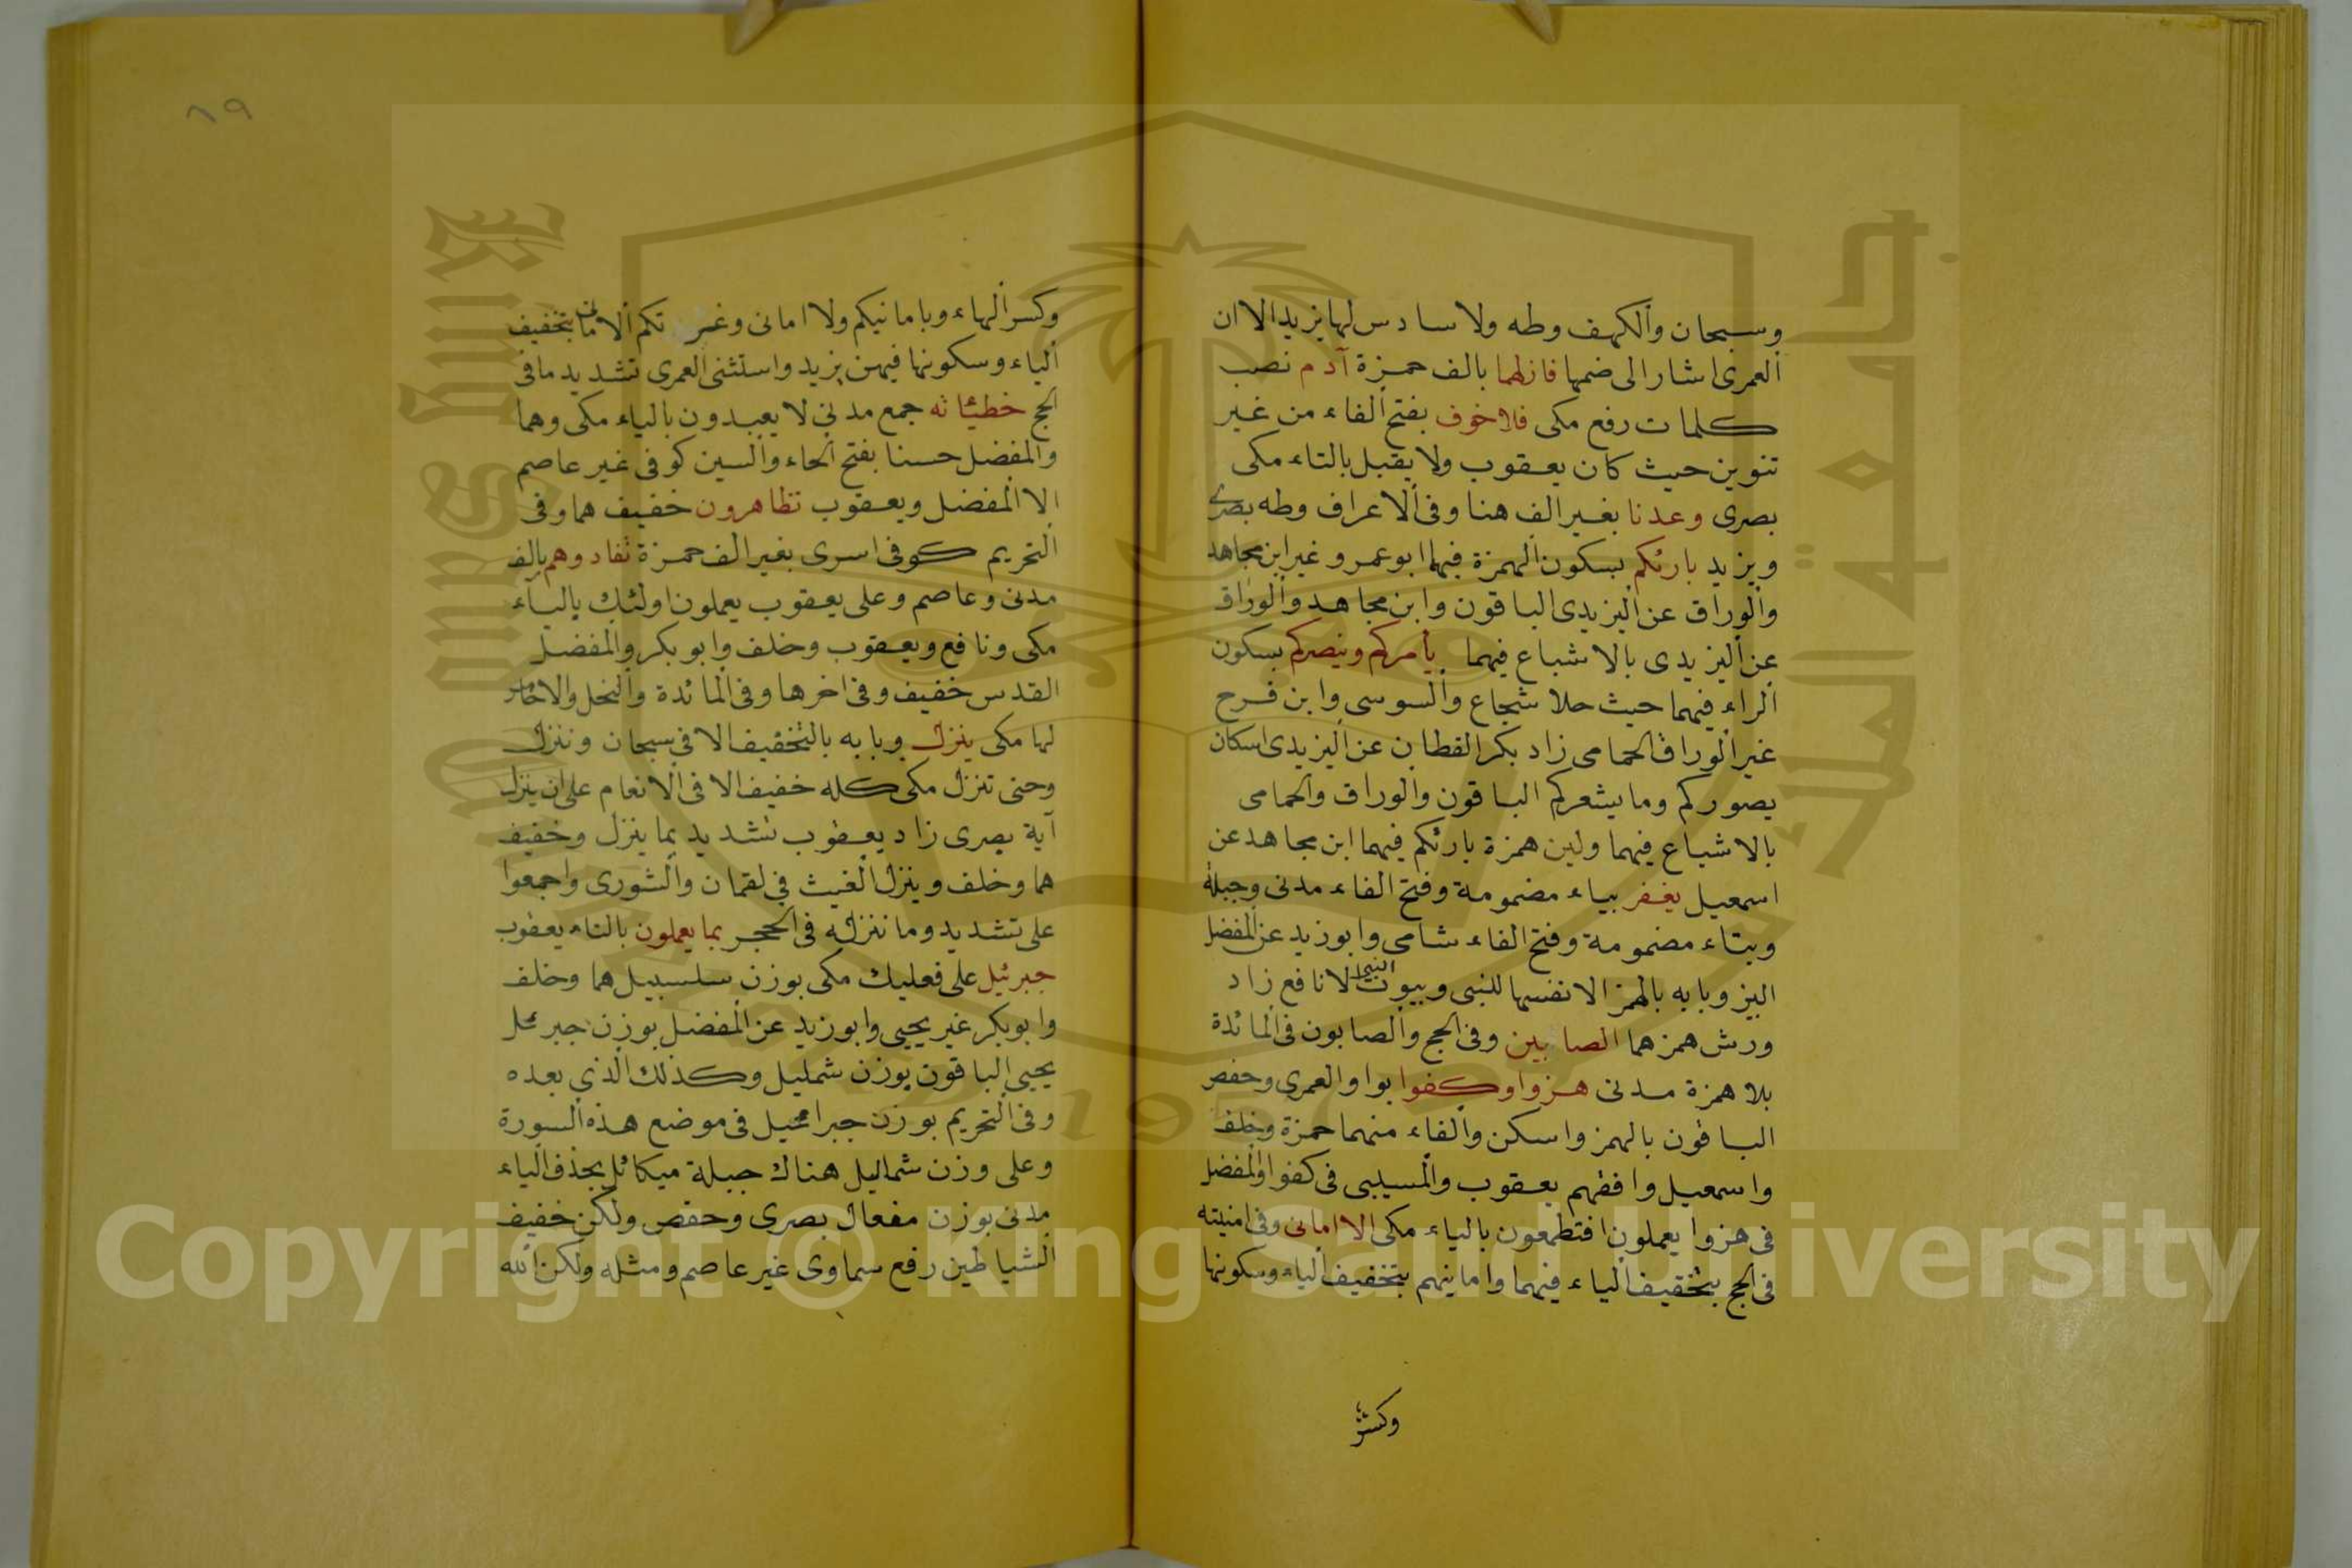 وسبحان والكهف وطه ولا سادس لها يزيد الا ان
العمرى اشار الى ضمها فازلهما بالف حمزة آدم نصب
كلمات رفع مكى فلا خوف بفتح الفاء من غير
تنوين حيث كان يعقوب ولا يقبل بالتاء مكى
بصرى وعدنا بغير الف هنا وفى الاعراف وطه بصرى
ويزيد بارئكم بسكون الهمزة فيهما ابو عمرو غير ابن مجاهد
والوراق عن اليزيدى الباقون وابن مجاهد والوراق
عن اليزيدى بالاشباع فيهما يأمركم وينصركم بسكون
الراء فيهما حيث حلا شجاع والسوسى وابن فرح
غير الوراق الحمامى زاد بكر القطان عن اليزيدى اسكان
يصوركم وما يشعركم الباقون والوراق والحمامى
بالاشباع فيهما ولين همزة بارئكم فيهما ابن مجاهد عن
اسمعيل يغفر بياء مضمومة وفتح الفاء مدنى وجبلة
وبتاء مضمومة وفتح الفاء شامى وابو زيد عن المفضل
البز وبابه بالهمز الا نفسها للنبى وبيوت النبى الا نافع زاد
ورش همزهما الصابين وفى الحج والصابون فى المائدة
بلا همزة مدنى هزوا وكفوا بوا والعمرى وحفص
الباقون بالهمز واسكن والفاء منهما حمزة وخلف
واسمعيل وافقهم يعقوب والمسيبى فى كفوا والمفضل
فى هزوا يعملون افتطمعون بالياء مكى الا امانى وفى امنيته
فى الحج بتخفيف الياء فيهما وامانيهم بتخفيف الياء وسكونها
وكسر
٨٩
وكسر الهاء وبامانيكم ولا امانى وغرتكم الامانى بتخفيف
الياء وسكونها فيهن يزيد واستثنى العمرى تشديد ما فى
الحج خطيئاته جمع مدنى لا يعبدون بالياء مكى وهما
والمفضل حسنا بفتح الحاء والسين كوفى غير عاصم
الا المفضل ويعقوب تظاهرون خفيف هما وفى
التحريم كوفى اسرى بغير الف حمزة تفادوهم بالف
مدنى وعاصم وعلى يعقوب يعملون اولئك بالياء
مكى ونافع ويعقوب وخلف وابو بكر والمفضل
القدس خفيف وفى اخرها وفى المائدة والنحل والاختار
لها مكى ينزل وبابه بالتخفيف الا فى سبحان وننزل
وحتى تنزل مكى كله خفيف الا فى الانعام على ان ينزل
آية بصرى زاد يعقوب تشديد بما ينزل وخفيف
هما وخلف وينزل الغيث فى لقمان والشورى واجمعوا
على تشديد وما ننزله فى الحجر بما يعملون بالتاء يعقوب
جبرئيل على فعليك مكى بوزن سلسبيل هما وخلف
وابو بكر غير يحيى وابو زيد عن المفضل بوزن جبرعل
يحيى الباقون بوزن شمليل وكذلك الذى بعده
وفى التحريم بوزن جبراعيل فى موضع هذه السورة
وعلى وزن شماليل هناك جبلة ميكائل بحذف الياء
مدنى بوزن مفعال بصرى وحفص ولكن خفيف
الشياطين رفع سماوى غير عاصم ومثله ولكن الله
Copyright © King Saud University